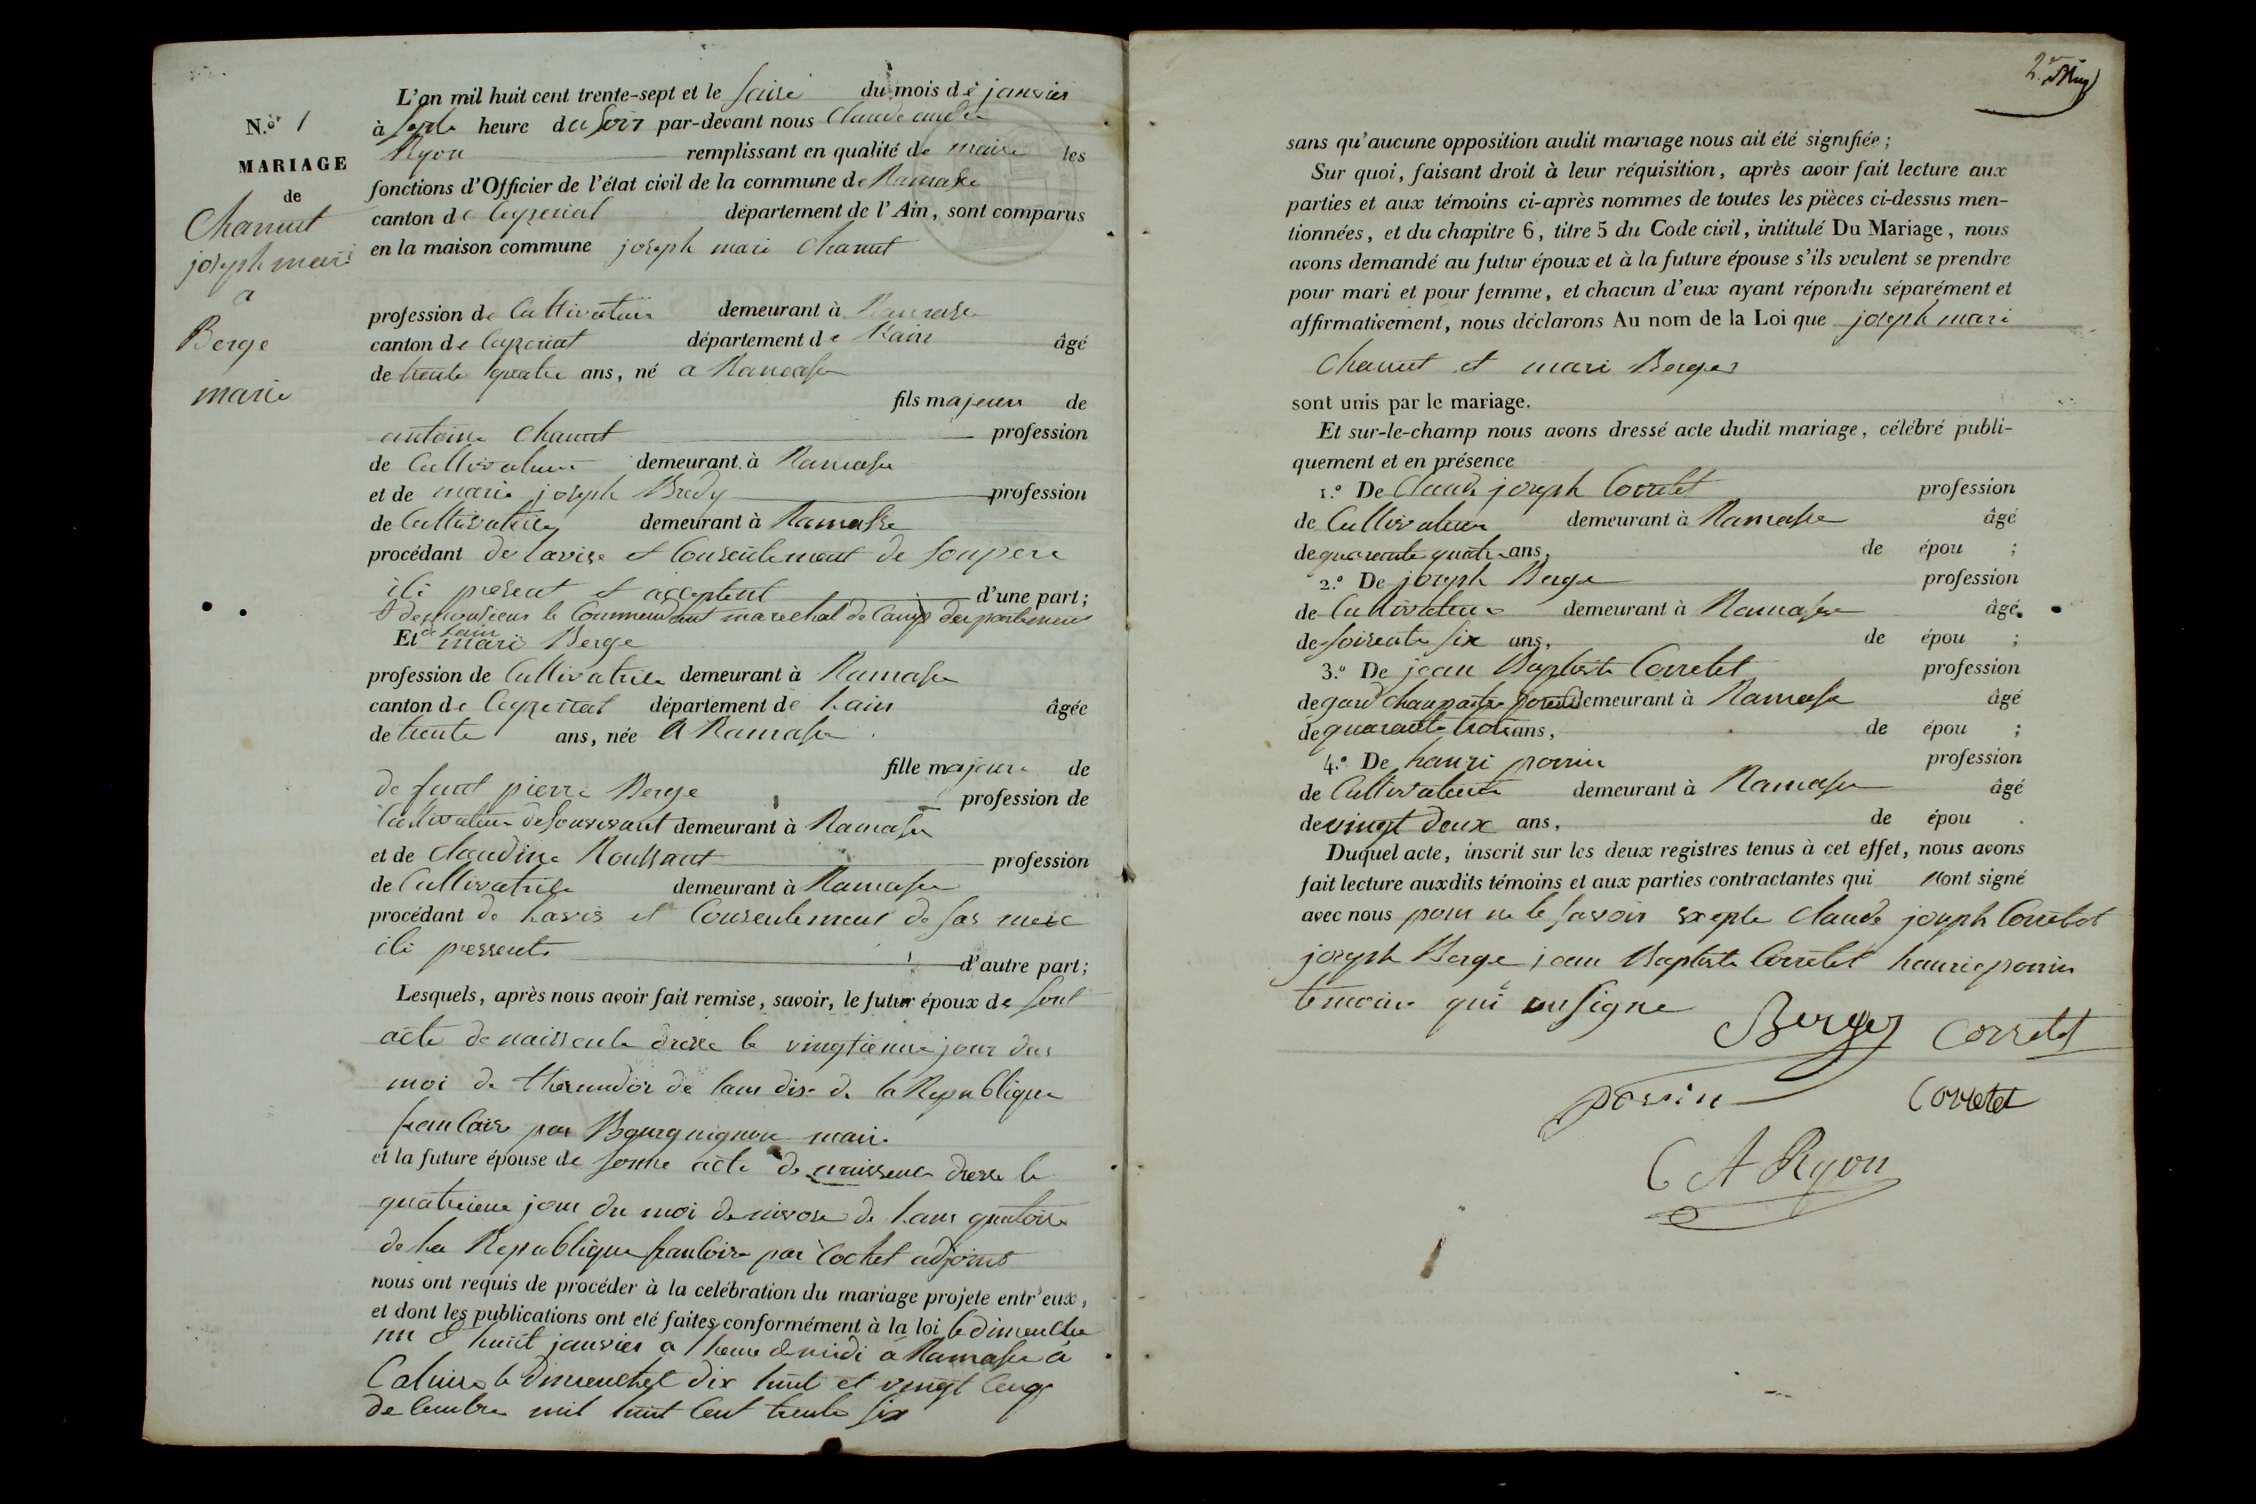 N.o 1
MARIAGE
de
Chanut
joseph mari
a
Berge
marie
L'an mil huit cent trente-sept et le saire du mois de janvier
à septe heure du soir par-devant nous Claude andré
Ryon remplissant en qualité de maire les
fonctions d'Officier de l'état civil de la commune de Ramasse
canton de Ceyzeriat département de l'Ain, sont comparus
en la maison commune joseph mari Chanut
profession de Cultivateur demeurant à Ramasse
canton de Ceyzeriat département de Lain âgé
de trente quatre ans, né a Ramasse
fils majeur de
antoine Chanut profession
de Cultivateur demeurant à Ramasse
et de marie joseph Bredy profession
de Cultivatrice demeurant à Ramasse
procédant de lavise et Consentement de son pere
ici present et acceptent d'une part;
et de monsieur le Commendant marechal de Camp du partement
de Lain
Et mari Berge
profession de Cultivatrice demeurant à Ramasse
canton de Ceyzeriat département de Lain âgée
de trente ans, née A Ramasse
fille majeure de
de funt pierre Berge profession de
Cultivateur de sonvivant demeurant à Ramasse
et de Claudine Roussant profession
de Cultivatrice demeurant à Ramasse
procédant de Lavis et Consentement de sas mere
ici pressente d'autre part;
Lesquels, après nous avoir fait remise, savoir, le futur époux de sont
acte de naissence dresse le vingtieme jour du
moi de thermidor de lans dix de la Republique
francaise par Bourguignon maire
et la future épouse de sonne acte de naissence dresse le
quatrieme jour du moi de nivose de Lans quatorse
de la Republique francoise par Cochet adjoint
nous ont requis de procéder à la celébration du mariage projete entr'eux,
et dont les publications ont eté faites conformément à la loi le dimenche
un & huit janvier a 1 heure de midi a Ramasse a
le dimenche dix huit et vingt cinq
decembre mil huit Cent trente six
2e
sans qu'aucune opposition audit mariage nous ait été signifiée;
Sur quoi, faisant droit à leur réquisition, après avoir fait lecture aux
parties et aux témoins ci-après nommes de toutes les pièces ci-dessus men-
tionnées, et du chapitre 6, titre 5 du Code civil, intitulé Du Mariage, nous
avons demandé au futur époux et à la future épouse s'ils veulent se prendre
pour mari et pour femme, et chacun d'eux ayant répondu séparément et
affirmativement, nous déclarons Au nom de la Loi que joseph mari
Chanut et mari Berger
sont unis par le mariage.
Et sur-le-champ nous avons dressé acte dudit mariage, célébré publi-
quement et en présence
1.o De Claude joseph Corretet profession
de Cultivateur demeurant à Ramasse âgé
de quarente quatre ans, de épou ;
2.o De joseph Berge profession
de Cultivateur demeurant à Ramasse âgé
de soisente six ans, de épou ;
3.o De jean Baptiste Corretet profession
de gard Champaitre forestie demeurant à Ramasse âgé
de quarante trois ans, de épou ;
4.o De hanri porrin profession
de Cultivateur demeurant à Ramasse âgé
de vingt deux ans, de épou .
Duquel acte, inscrit sur les deux registres tenus à cet effet, nous avons
fait lecture auxdits témoins et aux parties contractantes qui nont signé
avec nous pour ne le savoir exepte Claude joseph Corretet
joseph Berge jean Baptiste Corretet hanrie porrin
temoins qui on signe
Berger Corretet
porrin Corretet
C A Ryon